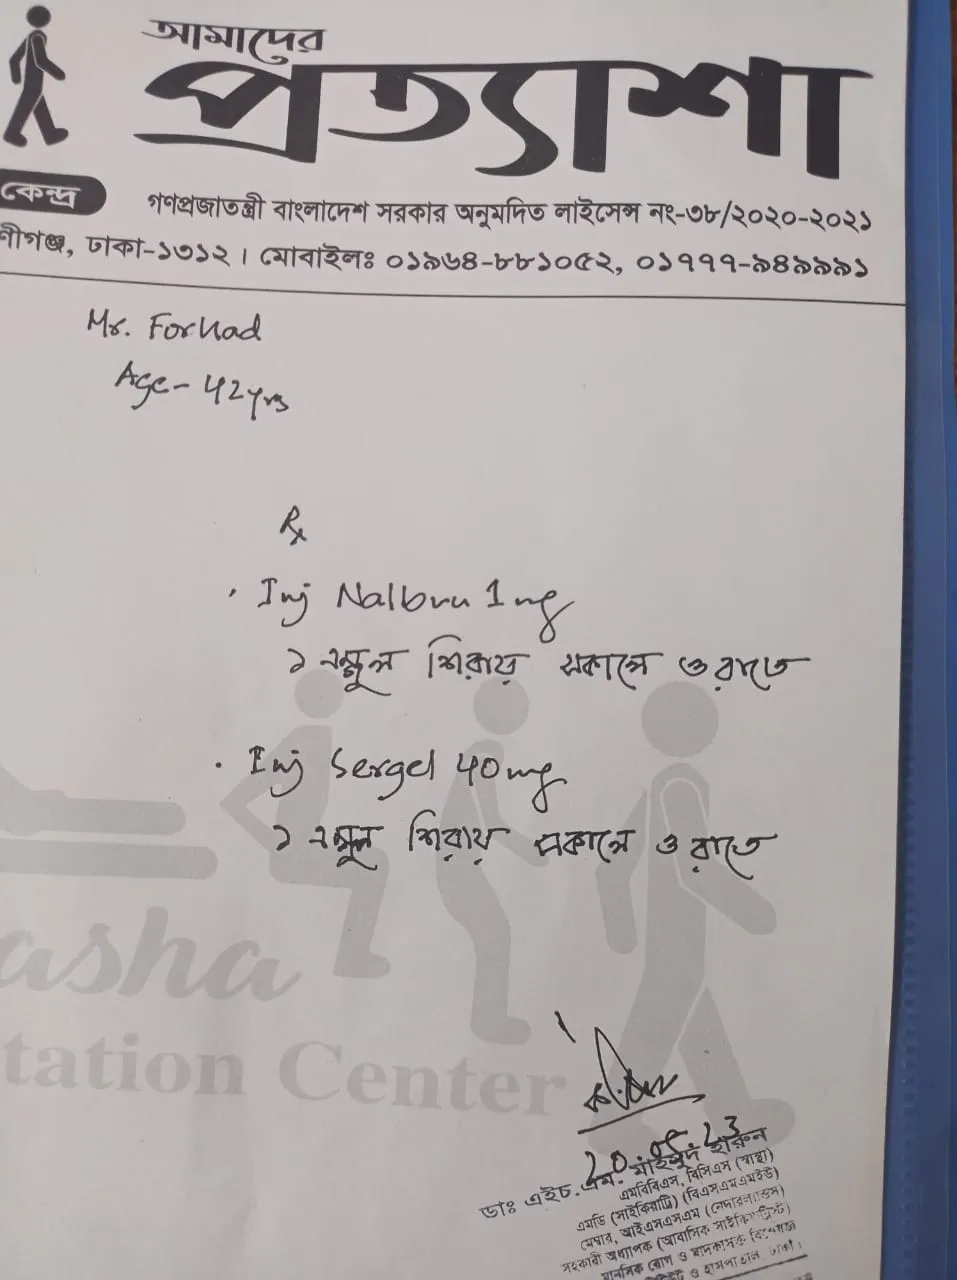 আমাদের
প্রত্যাশা
কেন্দ্র
গণপ্রজাতন্ত্রী বাংলাদেশ সরকার অনুমদিত লাইসেন্স নং-৩৮/২০২০-২০২১
নীগঞ্জ, ঢাকা-১৩১২ । মোবাইলঃ ০১৯৬৪-৮৮১০৫২, ০১৭৭৭-৯৪৯৯৯১
Mr. Forhad
Age- 42 yrs
Rx
Inj Nalbun 1 mg
১ এম্পুল শিরায় সকালে ও রাতে
Inj Sergel 40 mg
১ এম্পুল শিরায় সকালে ও রাতে
asha
tation Center
ডাঃ এইচ.এম. হারুন
এমবিবিএস, বিসিএস (স্বাস্থ্য)
এমডি (সাইকিয়াট্রি) (বিএসএমএমইউ)
মেম্বার, আইএসএসএম (নেদারল্যান্ডস)
সহকারী অধ্যাপক (আবাসিক সাইকিয়াট্রিস্ট)
মানসিক রোগ ও মাদকাসক্ত বিশেষজ্ঞ
ও হাসপাতাল, ঢাকা।